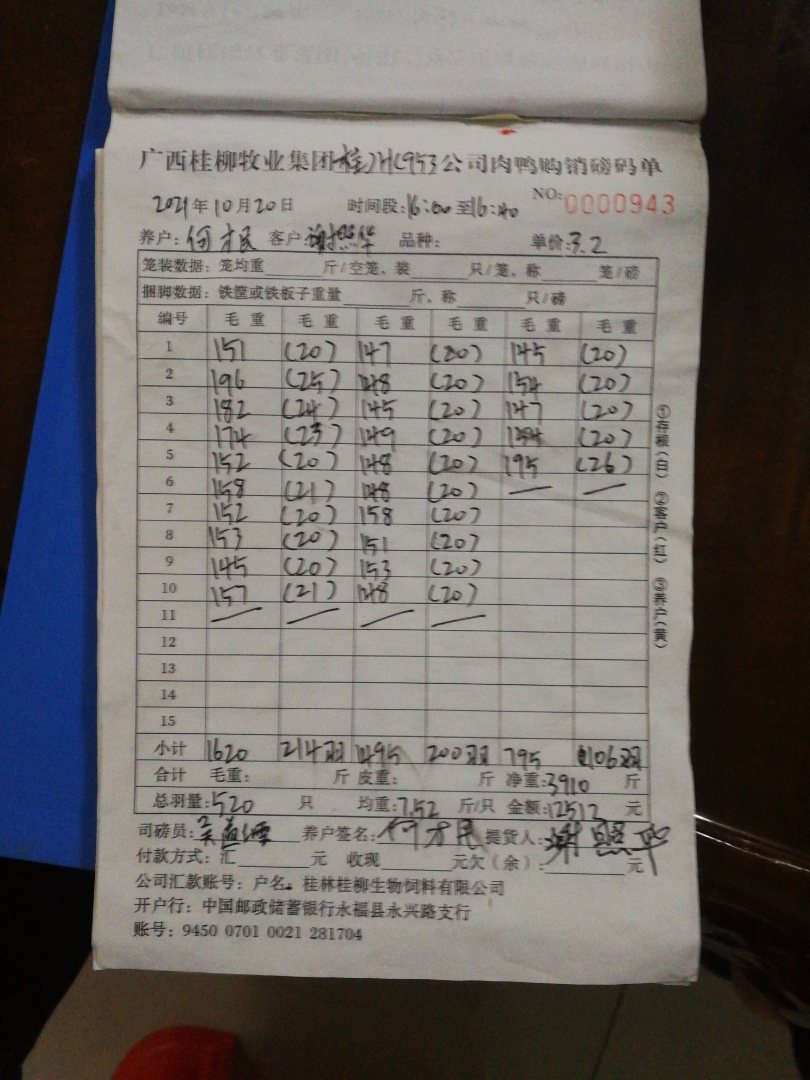 广西桂柳牧业集团桂川C953公司肉鸭购销磅码单
2021年10月20日 时间段:16:00至16:40 NO:0000943
养户:何才民 客户:谢照华 品种: 单价:3.2
笼装数据:笼均重 斤/空笼、装 只/笼、称 笼/磅
捆脚数据:铁筐或铁板子重量 斤、称 只/磅
编号 毛重 毛重 毛重 毛重 毛重 毛重
1 151 (20) 147 (20) 145 (20)
2 196 (25) 148 (20) 154 (20)
3 182 (24) 145 (20) 147 (20)
4 174 (23) 149 (20) 154 (20)
5 152 (20) 148 (20) 195 (26)
6 158 (21) 148 (20) — —
7 152 (20) 158 (20)
8 153 (20) 151 (20)
9 145 (20) 153 (20)
10 157 (21) 148 (20)
11 — — — —
12
13
14
15
小计 1620 214羽 1495 200羽 795 106羽
合计 毛重: 斤 皮重: 斤 净重:3910 斤
总羽量:520 只 均重:7.52 斤/只 金额:12512 元
司磅员: 养户签名:何才民 提货人:谢照华
付款方式:汇 元 收现 元欠(余): 元
公司汇款账号:户名:桂林桂柳生物饲料有限公司
开户行:中国邮政储蓄银行永福县永兴路支行
账号:9450 0701 0021 281704
①存根(白) ②客户(红) ③养户(黄)